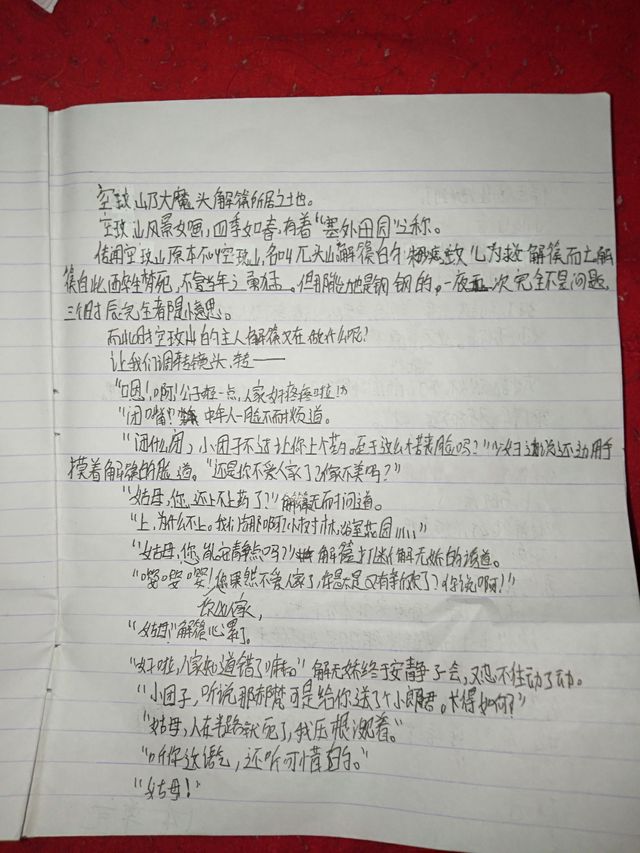 空玫山乃大魔头解篠所居之地。
空玫山风景如画,四季如春,有着“塞外田园”之称。
传闻空玫山原本不叫空玫山,名叫兀头山解篠的个 为救解篠而亡解
篠自此醉生梦死,不复当年之勇猛。但那能力也是钢钢的,一夜五次完全不是问题,
三个时辰完全都是小意思。
而此时空玫山的主人解篠又在做什么呢?
让我们调转镜头,转——
“嗯!啊!公子轻一点,人家好疼疼啦!”
“闭嘴!”中年人一脸不耐烦道。
“闭什么闭,小团子不过让你上个药。至于这么个苦丧脸吗?”少妇边说还边用手
摸着解篠的脸道。“还是你不爱人家了?人家不美吗?”
“姑母,你还上不上药了?”解篠无奈问道。
“上,为什么不上。我们 啊小树林,浴室花园……”
“姑母,您能安静点吗?”解篠打断解无娇的话道。
“嘤嘤嘤!您果然不爱人家了,你是不是又有新欢了?你说啊!”
你如人家,
“姑母!”解篠心累了。
“好啦,人家知道错了嘛。”解无娇终于安静了会,又忍不住动了动。
“小团子,听说那赤魔可是给你送了个小郎君。长得如何?”
“姑母,人在半路就死了,我压根没看。”
“听你这语气,还听可惜的。”
“姑母!”